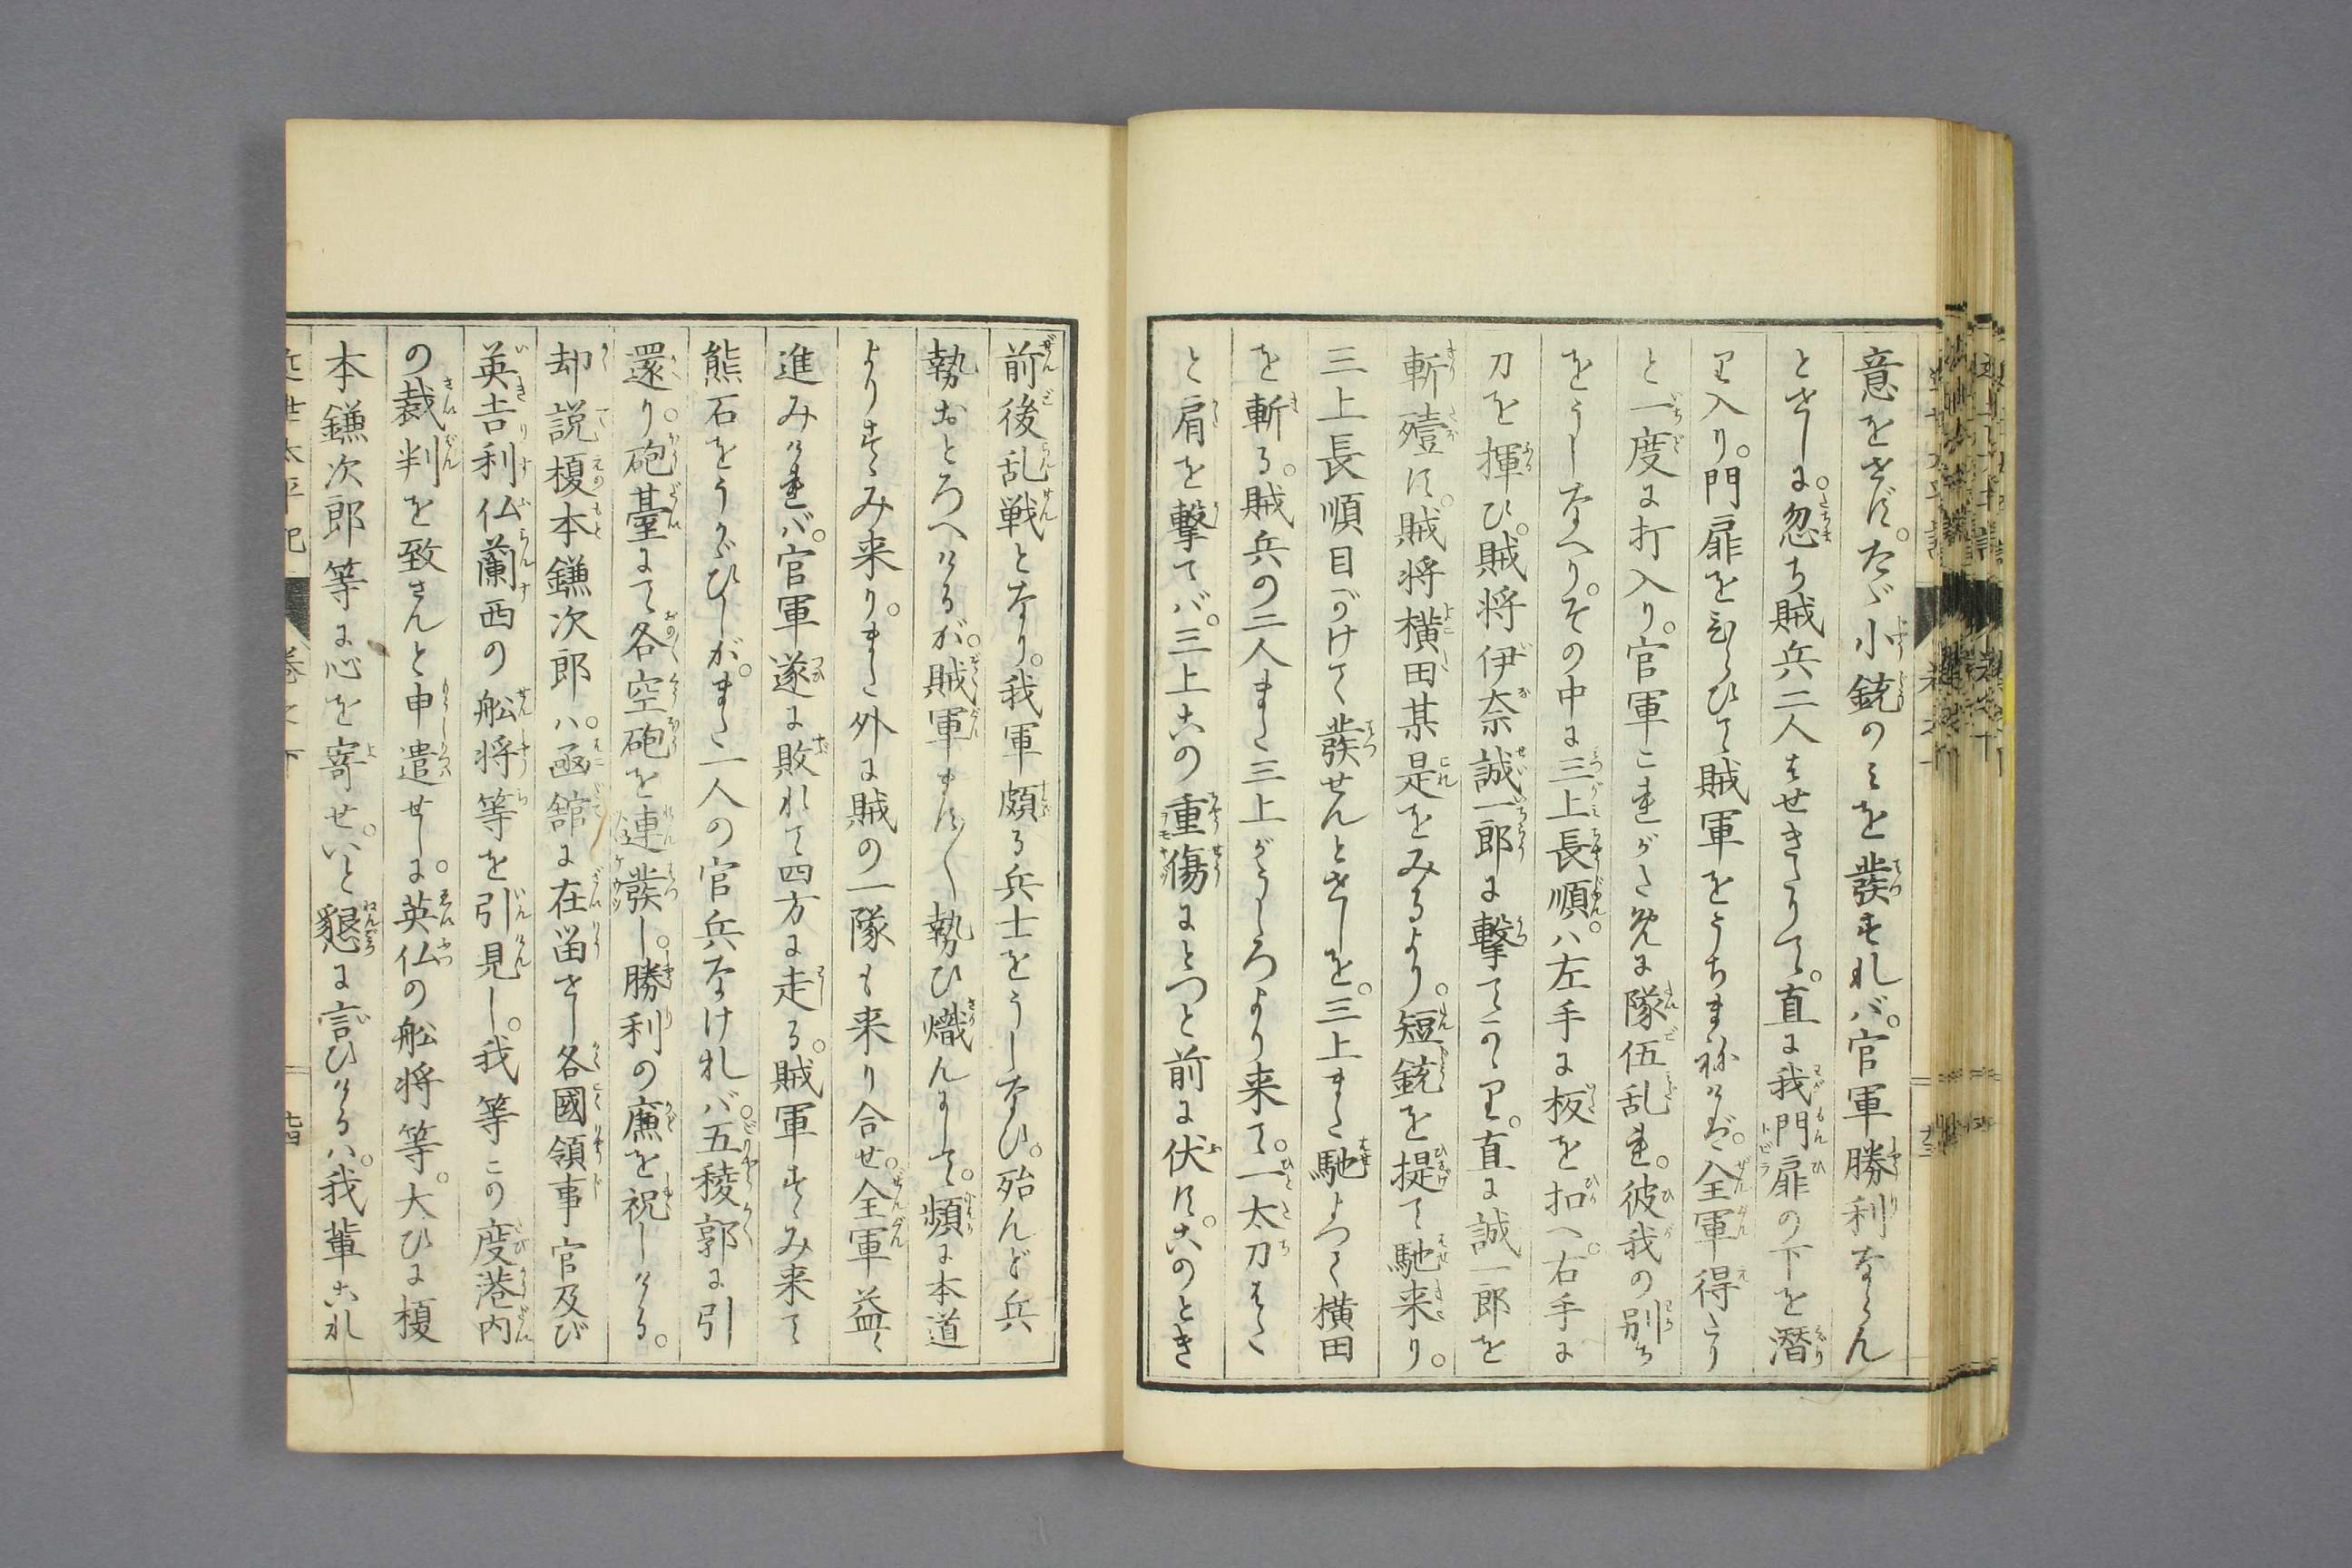 意をせず。たゞ小銃のミを發すれバ。官軍勝利ならん
とせしに。忽ち賊兵二人はせきたりて。直に我門扉の下を潜
り入り。門扉をひらひて賊軍をうちまねけバ。全軍得たり
と一度に打入り。官軍これがため に隊伍乱れ。彼我の別ち
をうしなへり。その中に三上長順。ハ左手に板を扣へ。右手に
刀を揮ひ。賊将伊奈誠一郎に撃てかゝり。直に誠一郎を
斬殪す。賊将横田某是をみるより。短銃を提て馳来り。
三上長順目がけて發せんとせしを。三上また馳よつて横田
を斬る。賊兵の二人また三上がうしろより来て。一太刀はた
と肩を撃てバ。三上この重傷にどつと前に伏す。このとき
前後乱戦となり。我軍頗る兵士をうしなひ。殆んど兵
勢おとろへけるが。賊軍ます〳〵勢ひ熾んにして。頻に本道
よりすゝみ来り。また外に賊の一隊も来り合せ。全軍益々
進みけれバ。官軍遂に敗れて四方に走る。賊軍すゝみ来て
熊石をうかゞひしが。また一人の官兵なけれバ。五稜郭に引
還り。砲臺にて各空砲を連發し。勝利の廉を祝しける。
却説榎本鎌次郎ハ。凾舘に在畄せし各國領事官及び
英吉利仏蘭西の舩将等を引見し。我等この度港内
の裁判を致さんと申遣せしに。英仏の舩将等。大ひに榎
本鎌次郎等に心を寄せ。いと懇に言ひけるハ。我輩これ
近世太平記 巻之十 十四